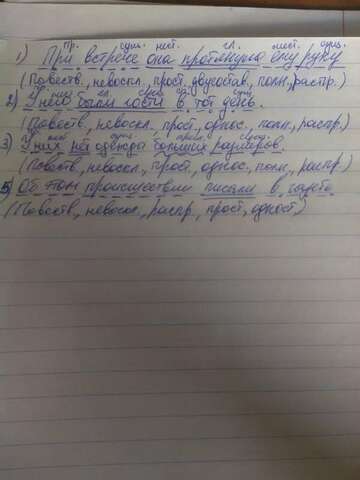 пр. сущ. мест. гл. мест. сущ.
1) При встрече она протянула ему руку
(Повеств., невоскл., прост, двусостав., полн., распр.)
2) У него были гости в тот день.
(Повеств, невоскл., прост, однос., полн., распр.)
3) У них нет одежды больших размеров.
(Повеств, невоскл., прост, однос., полн., распр)
5) Об этом происшествии писали в газете
(Повеств, невоскл, распр, прост, одност)